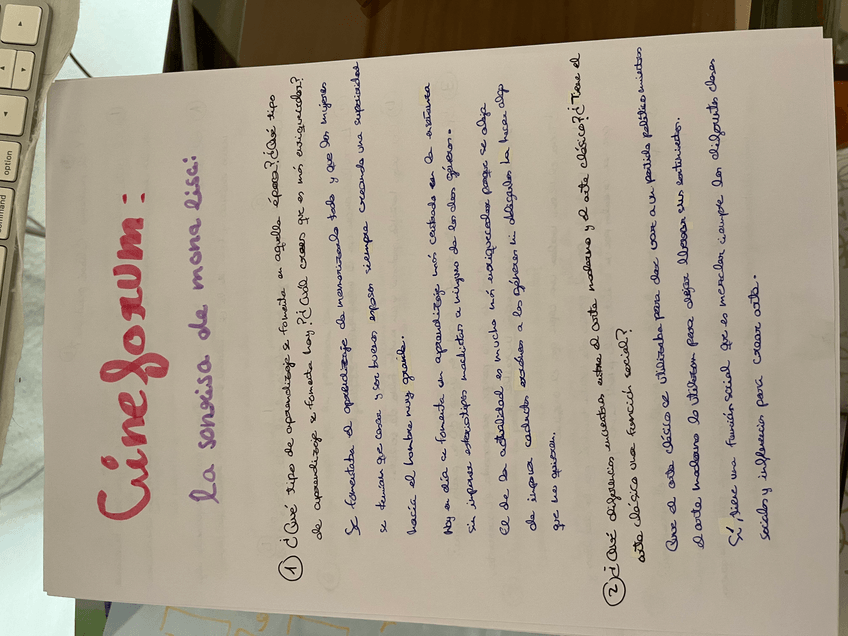 Cineforum:
la sonrisa de mona lisa:
1 ¿Qué tipo de aprendizaje se fomenta en aquella época? ¿Qué tipo
de aprendizaje se fomenta hoy? ¿Cuál crees que es más enriquecedor?
Se fomentaba el aprendizaje de memorizarlo todo y que las mujeres
se tenían que casar y ser buenas esposas siempre creando una superioridad
hacia el hombre muy grande.
Hoy en día se fomenta un aprendizaje más centrado en la enseñanza
sin imponer estereotipos machistas a ninguno de los dos géneros.
El de la actualidad es mucho más enriquecedor porque se aleja
de imponer conductos a los géneros ni obligarlos ha hacer algo
que no quieran.
2 ¿Qué diferencias encuentras entre el arte moderno y el arte clásico? ¿Tiene el
arte clásico una función social?
Que el arte clásico se utilizaba para dar voz a un partido político mientras
el arte moderno lo utilizan para dejar llevar sus sentimientos.
Sí, tiene una función social que es mezclar siempre las diferentes clases
sociales y influencias para crear arte.
option
command